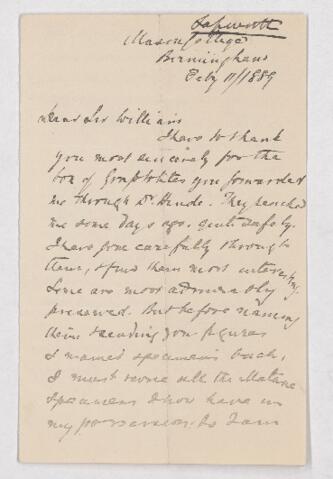 Lapworth
Mason College
Birmingham
Feby 11/1889
Dear Sir William
I have to thank
you most sincerely for the
box of Graptolites you forwarded
me through Dr. Hinde. They reached
me some days ago, quite safely.
I have gone carefully through
them, & find them most interesting.
Some are most admirably
preserved. But before naming
them & sending you figures
& named specimens back,
I must revise all the Matane
specimens I now have in
my possession. So I am